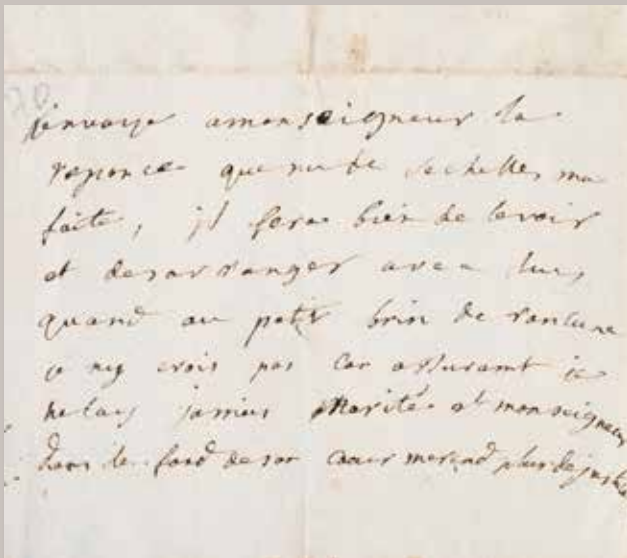 20
jenvoye amonseigneur la
reponce que mr de sechelles ma
faite, jl fera bien de le voir
et desarranger avec luy
quand au petit brin de rancune
je ny crois pas car assurament je
ne lay jamais merité et monseigneur
dans le fond de son coeur me rend plus de justice